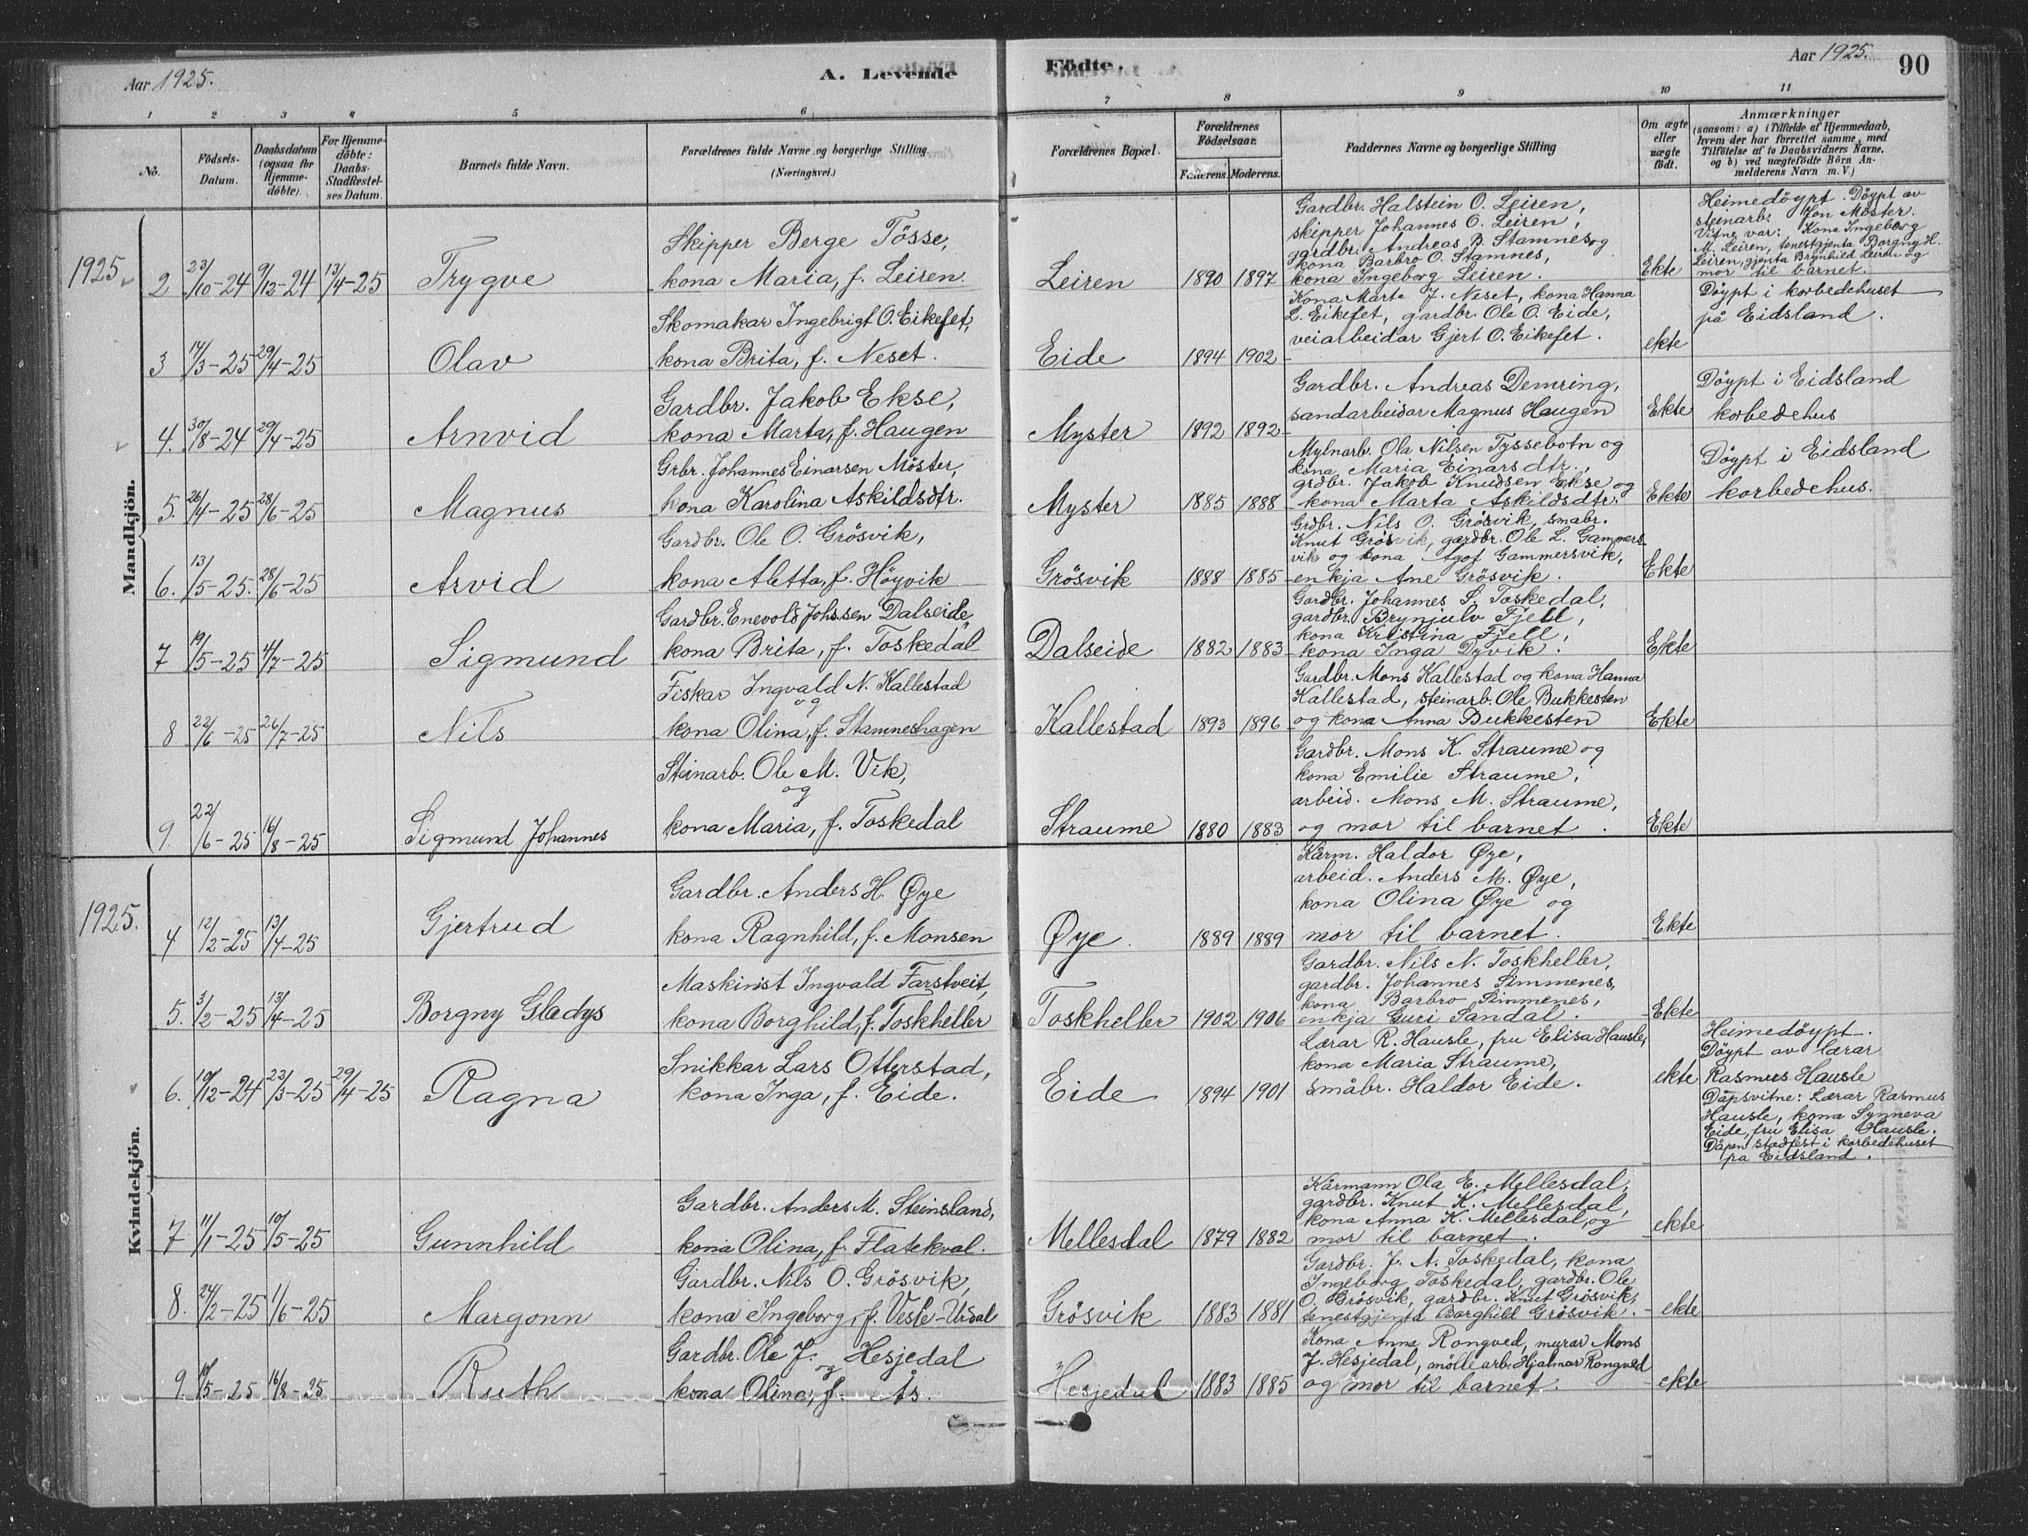 Aar 1925.
A. Levende
Födte.
Aar 1925.
90
1 2 3 4 5 6 7 8 9 10 11
No.
Födsels-
Datum.
Daabsdatum
(ogsaa for
Hjemme-
döbte).
For Hjemme-
döbte:
Daabs-
Stadfæstel-
ses Datum.
Barnets fulde Navn.
Forældrenes fulde Navne og borgerlige Stilling
(Næringsvei.)
Forældrenes Bopæl.
Forældrenes
Födselsaar.
Faderens. Moderens.
Faddernes Navne og borgerlige Stilling
Om ægte
eller
uægte
födt.
Anmærkninger
(saasom: a) i Tilfælde af Hjemmedaab,
hvem der har forrettet samme, med
Tilföielse af to Daabsvidners Navne,
og b) ved uægtefödte Börn An-
melderens Navn m. V.)
Mandkjön.
1925
2 23/10-24 9/12-24 13/4-25 Trygve
Skipper Berge Tösse,
kona Maria, f. Leiren.
Leiren 1890 1897
Gardbr. Halstein O. Leiren,
skipper Johannes O. Leiren,
gardbr. Andreas B. Stamnes og
kona Barbro O. Stamnes,
kona Ingeborg Leiren.
Ekte
Heimedöypt. Döypt av
steinarb. Jon Möster.
Vitne var: Kona Ingeborg
M. Leiren, tenestgjenta Borgny H.
Leiren, gjenta Brynhild Leiren og
mor til barnet.
3 14/3-25 29/4-25 Olav
Skomakar Ingebrigt O. Eikefet,
kona Brita, f. Neset.
Eide 1894 1902
Kona Marte J. Neset, kona Hanna
L. Eikefet, gardbr. Ole O. Eide,
veiarbeidar Gjert O. Eikefet.
ekte
Döypt i korbedehuset
på Eidsland.
4. 30/8-24 29/4-25 Arnvid
Gardbr. Jakob Ekse,
kona Marta, f. Haugen
Myster 1892 1892
Gardbr. Andreas Demring,
sandarbeidar Magnus Haugen
Ekte
Döypt i Eidsland
korbedehus
5. 26/4-25 28/6-25 Magnus
Grbr. Johannes Einarsen Möster,
kona Karolina Askildsdtr.
Myster 1885 1888
Mylnarb. Ola Nilsen Tyssebotn og
kona Maria Einarsdtr.,
grdbr. Jakob Knudsen Ekse og
kona Marta Askildsdtr.
Ekte
Döypt i Eidsland
korbedehus.
6. 13/5-25. 28/6-25 Arvid
Gardbr. Ole O. Grösvik,
kona Aletta, f. Höyvik
Grösvik 1888 1885
Grdbr. Nils O. Grösvik, smabr.
Knut Grösvik, gardbr. Ole L. Gammers-
vik og kona Agot Gammersvik,
enkja Ane Grösvik.
Ekte
7 19/5-25 4/7-25 Sigmund
Gardbr. Enevold Johssen Dalseide,
kona Brita, f. Toskedal
Dalseide 1882 1883
Gardbr. Johannes S. Toskedal,
gardbr. Brynjulv Fjell,
kona Kristina Fjell,
kona Inga Dyvik.
Ekte
8 22/6-25 26/7-25 Nils
Fiskar Ingvald N. Kallestad
og
kona Olina, f. Stamneshagen
Kallestad 1893 1896
Gardbr. Mons Kallestad og kona Hanna
Kallestad, steinarb. Ole Bukkesten
og kona Anna Bukkesten
Ekte
9. 22/6-25 16/8-25 Sigmund Johannes
Steinarb. Ole M. Vik,
og
kona Maria, f. Toskedal
Straume 1880 1883
Gardbr. Mons K. Straume og
kona Emilie Straume,
arbeid. Mons M. Straume,
og mor til barnet.
Ekte
Kvindekjön.
1925.
4 12/2-25 13/4-25 Gjertrud
Gardbr. Anders H. Øye
kona Ragnhild, f. Monsen
Øye. 1889 1889
Kårm. Haldor Øye,
arbeid. Anders M. Øye,
kona Olina Øye og
mor til barnet.
Ekte
5. 3/2-25 13/4-25 Borgny Gladys
Maskinist Ingvald Farstveit,
kona Borghild, f. Toskheller
Toskheller 1902 1906
Gardbr. Nils N. Toskheller,
gardbr. Johannes Simmenes,
kona Barbro Simmenes,
enkja Guri Sandal.
Ekte
6. 19/12-24 23/3-25 29/4-25 Ragna
Snikkar Lars Otterstad,
kona Inga, f. Eide.
Eide 1894 1901
Lærar R. Hausle, fru Elisa Hausle,
kona Maria Straume,
småbr. Haldor Eide.
ekte
Heimedöypt.
Döypt av lærar
Rasmus Hausle
Dåpsvitne: Lærar Rasmus
Hausle, kona Synneva
Eide, fru Elisa Hausle.
Dåpen stadfest i korbedehuset
på Eidsland.
7 11/1-25 10/5-25 Gunnhild
Gardbr. Anders M. Steinsland,
kona Olina, f. Flatekval.
Mellesdal 1879 1882
Kårmann Ola E. Mellesdal,
gardbr. Knut K. Mellesdal,
kona Anna K. Mellesdal, og
mor til barnet.
ekte
8. 24/2-25 1/6-25 Margonn
Gardbr. Nils O. Grösvik,
kona Ingeborg, f. Veste-Urdal
Grösvik 1883 1881
Gardbr. J. A. Toskedal, kona
Ingeborg Toskedal, gardbr. Ole
O. Grösvik, gardbr. Knut Grösvik,
tenestgjenta Borghild Grösvik.
ekte
9. 19/5-25 16/8-25 Ruth
Gardbr. Ole J. Hesjedal
og
kona Olina, f. Ås.
Hesjedal 1883 1885
Kona Anna Rongved, murar Mons
J. Hesjedal, möllearb. Hjalmar Rongved
og mor til barnet.
ekte